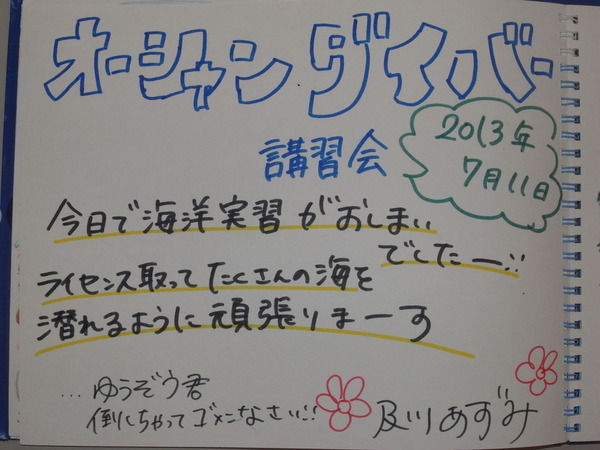 オーシャンダイバー
講習会
2013年
7月11日
今日で海洋実習がおしまい
でしたー!!
ライセンス取ってたくさんの海を
潜れるように頑張りまーす
...ゆうぞう君
倒しちゃってゴメンなさい!!
及川あずみ